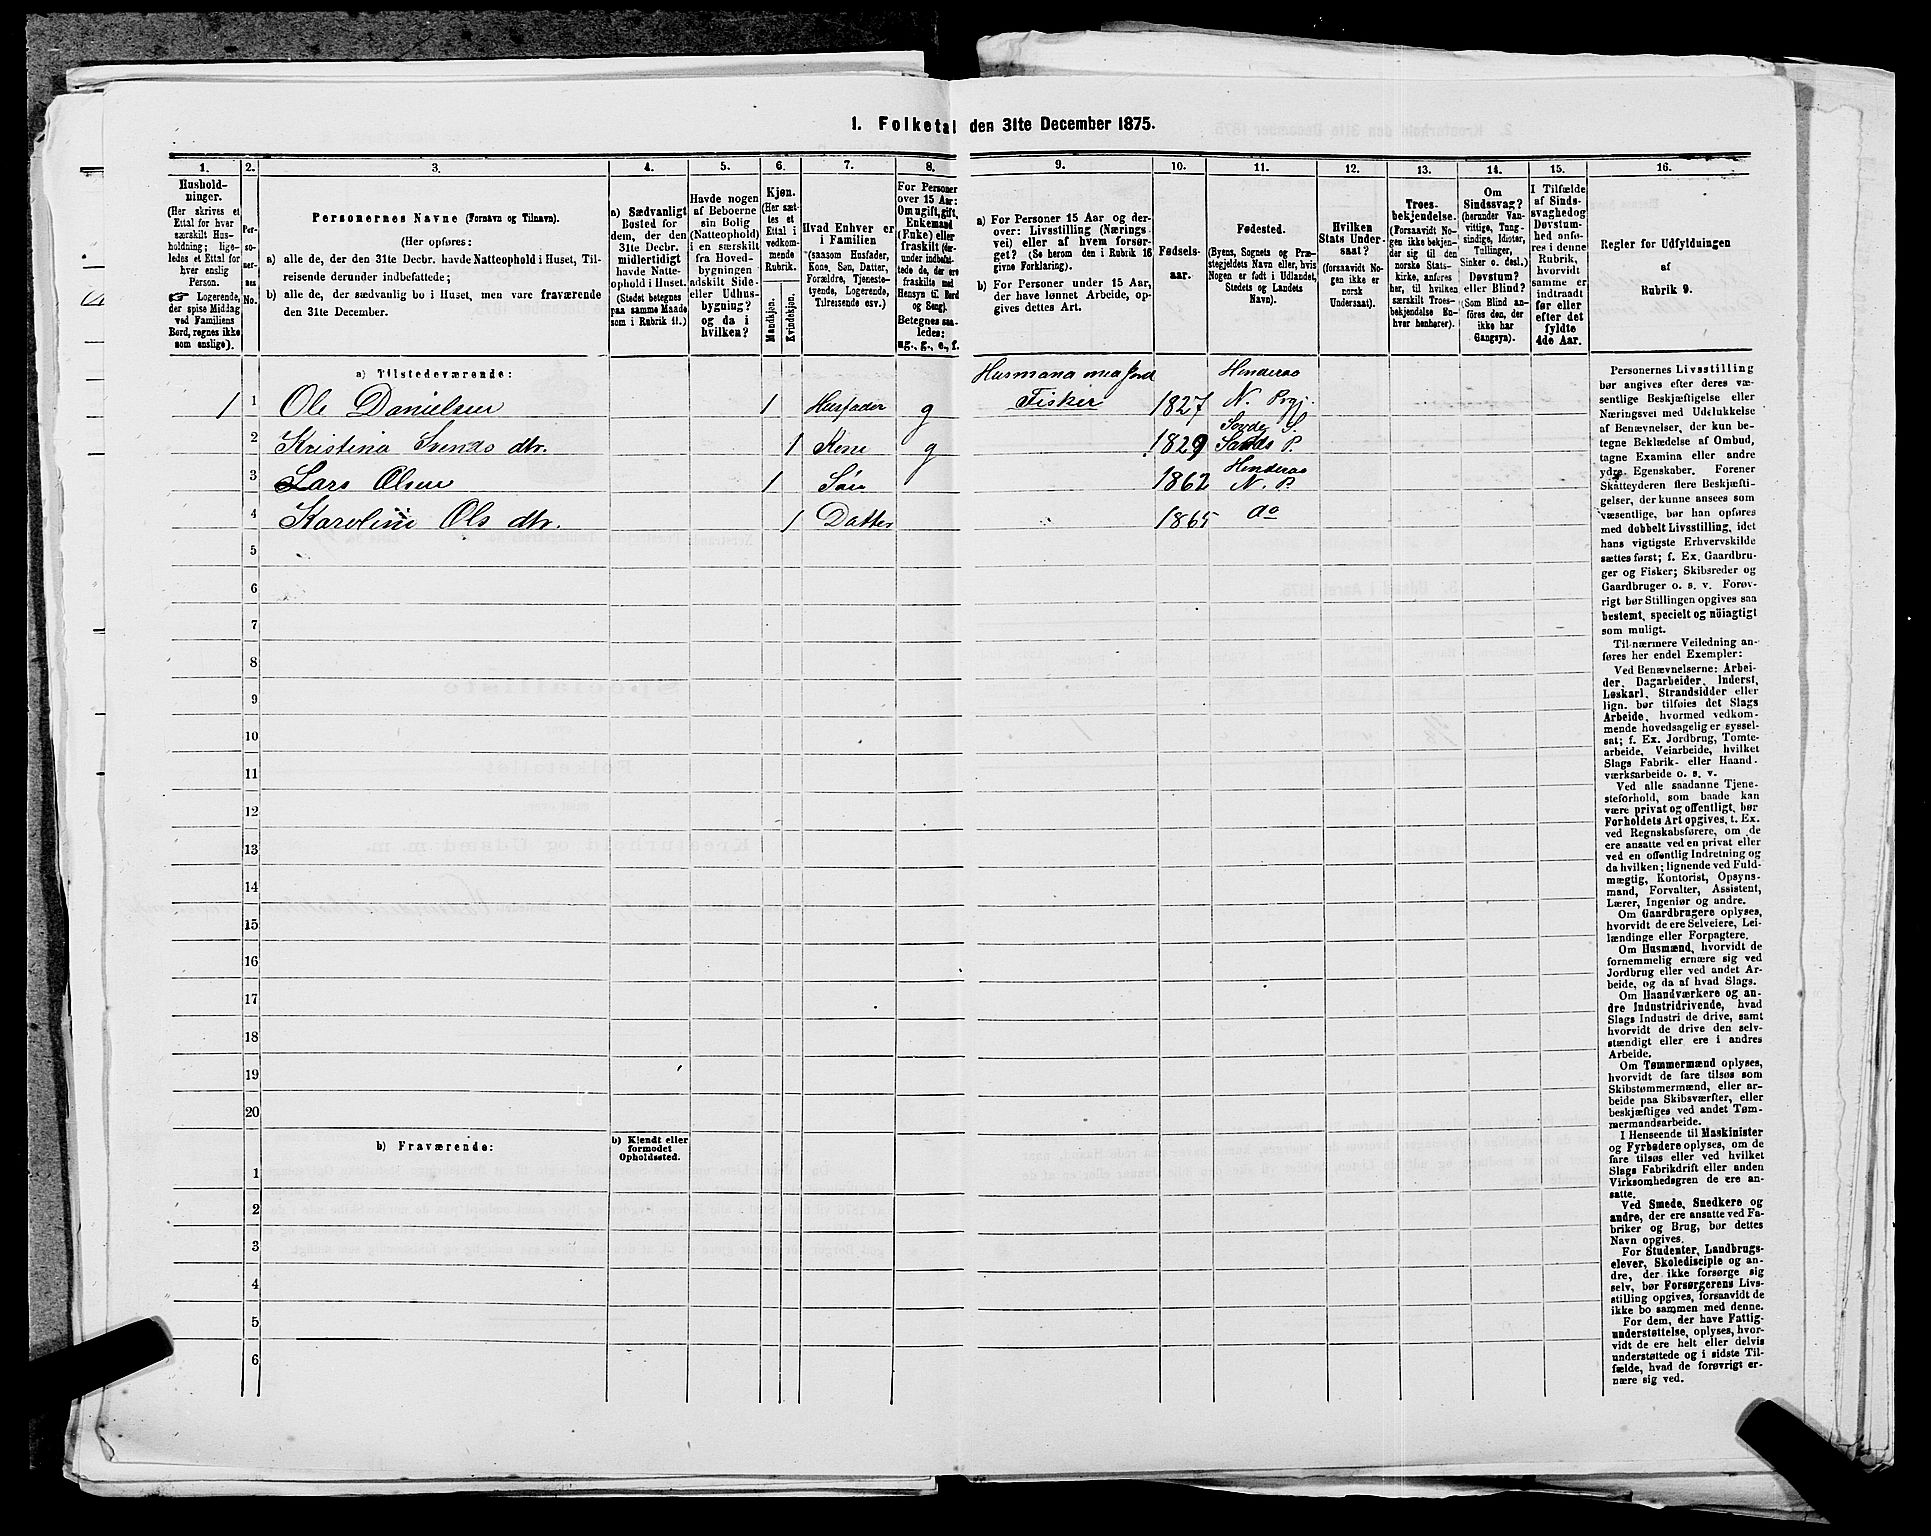 1. Folketal den 31te December 1875.
1. 2. 3. 4. 5. 6. 7. 8. 9. 10. 11. 12. 13. 14. 15. 16.
Hushold-
ninger.
(Her skrives et
Ettal for hver
særskilt Hus-
holdning; lige-
ledes et Ettal for
hver enslig
Person.
☞ Logerende,
der spise Middag
ved Familiens
Bord, regnes ikke
som enslige).
Per-
so-
ner-
nes
No.
Personernes Navne (Fornavn og Tilnavn).
(Her opføres:
a) alle de, der den 31te Decbr. havde Natteophold i Huset, Til-
reisende derunder indbefattede;
b) alle de, der sædvanlig bo i Huset, men vare fraværende
den 31te December.
a) Sædvanligt
Bosted for
dem, der den
31te Decbr.
midlertidigt
havde Natte-
ophold i Huset.
(Stedet betegnes
paa samme Maade
som i Rubrik 11.)
Havde nogen
af Beboerne
sin Bolig
(Natteophold)
i en særskilt
fra Hoved-
bygningen
adskilt Side-
eller Udhus-
bygning?
og da i
hvilken?
Kjøn.
(Her sæt-
tes et
Ettal i
vedkom-
mende
Rubrik.
Mandkjøn.
Kvindekjøn.
Hvad Enhver er
i Familien
(saasom Husfader,
Kone, Søn, Datter,
Forældre, Tjeneste-
tyende, Logerende,
Tilreisende osv.)
For Personer
over 15 Aar:
Om ugift, gift,
Enkemand
(Enke) eller
fraskilt (der-
under indbefat-
tede de, der ere
fraskilte med
Hensyn til Bord
og Seng).
Betegnes saa-
ledes:
ug., g., e., f.
a) For Personer 15 Aar og der-
over: Livsstilling (Nærings-
vei) eller af hvem forsør-
get? (Se herom den i Rubrik 16
givne Forklaring).
b) For Personer under 15 Aar,
der have lønnet Arbeide, op-
gives dettes Art.
Fødsels-
aar.
Fødested.
(Byens, Sognets og Præ-
stegjeldets Navn eller, hvis
Nogen er født i Udlandet,
Stedets og Landets
Navn).
Hvilken
Stats Under-
saat?
(forsaavidt No-
gen ikke er
norsk
Undersaat).
Troes-
bekjendelse.
(Forsaavidt No-
gen ikke bekjen-
der sig til den
norske Stats-
kirke, anføres
her, til hvilken
særskilt Troes-
bekjendelse En-
hver henhører).
Om
Sindssvag?
(herunder Van-
vittige, Tung-
sindige, Idioter,
Tullinger,
Sinker o. desl.)
Døvstum?
eller Blind?
(Som Blind an-
føres den, der
ikke har
Gangsyn).
I Tilfælde
af Sinds-
svaghed og
Døvstum-
hed anfø-
res i denne
Rubrik,
hvorvidt
samme er
indtraadt
før eller
efter det
fyldte
4de Aar.
Regler for Udfyldningen
af
Rubrik 9.
a) Tilstedeværende:
Husmand med jord Hinderaa
1 1 Ole Danielsen 1 Husfader g Fisker 1827 N. Prgj.
Sovde S.
2 Kristina Svends dtr. 1 Kone g 1829 Sands P.
Hinderaa
3 Lars Olsen 1 Søn 1862 N. P.
4 Karoline Ols dtr. 1 Datter 1865 do
5
6
7
8
9
10
11
12
13
14
15
16
17
18
19
20
b) Fraværende:
b) Kjendt eller
formodet
Opholdssted.
1
2
3
4
5
6
Personernes Livsstilling
bør angives efter deres væ-
sentlige Beskjæftigelse eller
Næringsvei med Udelukkelse
af Benævnelser, der kun be-
tegne Beklædelse af Ombud,
tagne Examina eller andre
ydre Egenskaber. Forener
Skatteyderen flere Beskjæfti-
gelser, der kunne ansees som
væsentlige, bør han opføres
med dobbelt Livsstilling, idet
hans vigtigste Erhvervskilde
sættes først; f. Ex. Gaardbru-
ger og Fisker; Skibsreder og
Gaardbruger o. s. v. Forøv-
rigt bør Stillingen opgives saa
bestemt, specielt og nöiagtigt
som muligt.
Til nærmere Veiledning an-
føres her endel Exempler:
Ved Benævnelserne: Arbei-
der, Dagarbeider, Inderst,
Løskarl, Strandsidder eller
lign. bør tilføies det Slags
Arbeide, hvormed vedkom-
mende hovedsagelig er syssel-
sat; f. Ex. Jordbrug, Tomte-
arbeide, Veiarbeide, hvilket
Slags Fabrik- eller Haand-
værksarbeide o. s. v.
Ved alle saadanne Tjene-
steforhold, som baade kan
være privat og offentligt, bør
Forholdets Art opgives, t. Ex.
ved Regnskabsførere, om de
ere ansatte ved en privat eller
ved en offentlig Indretning og
da hvilken; lignende ved Fuld-
mægtig, Kontorist, Opsyns-
mand, Forvalter, Assistent,
Lærer, Ingeniør og andre.
Om Gaardbrugere oplyses,
hvorvidt de ere Selveiere, Lei-
lændinge eller Forpagtere.
Om Husmænd, hvorvidt de
fornemmelig ernære sig ved
Jordbrug eller ved andet Ar-
beide, og da af hvad Slags.
Om Haandværkere og an-
dre Industridrivende, hvad
Slags Industri de drive, samt
hvorvidt de drive den selv-
stændigt eller ere i andres
Arbeide.
Om Tømmermænd oplyses,
hvorvidt de fare tilsøs som
Skibstømmermænd, eller ar-
beide paa Skibsværfter, eller
beskjæftiges ved andet Tøm-
mermandsarbeide.
I Henseende til Maskinister
og Fyrbødere oplyses, om de
fare tilsøs eller ved hvilket
Slags Fabrikdrift eller anden
Virksomhedsgren de ere an-
satte.
Ved Smede, Snedkere og
andre, der ere ansatte ved Fa-
briker og Brug, bør dettes
Navn opgives.
For Studenter, Landbrugs-
elever, Skoledisciple og an-
dre, der ikke forsørge sig
selv, bør Forsørgerens Livs-
stilling opgives, forsaavidt de
ikke bo sammen med denne.
For dem, der have Fattig-
understøttelse, oplyses, hvor-
vidt de ere helt eller delvis
understøttede og i sidste Til-
fælde, hvad de forøvrigt er-
nære sig ved.